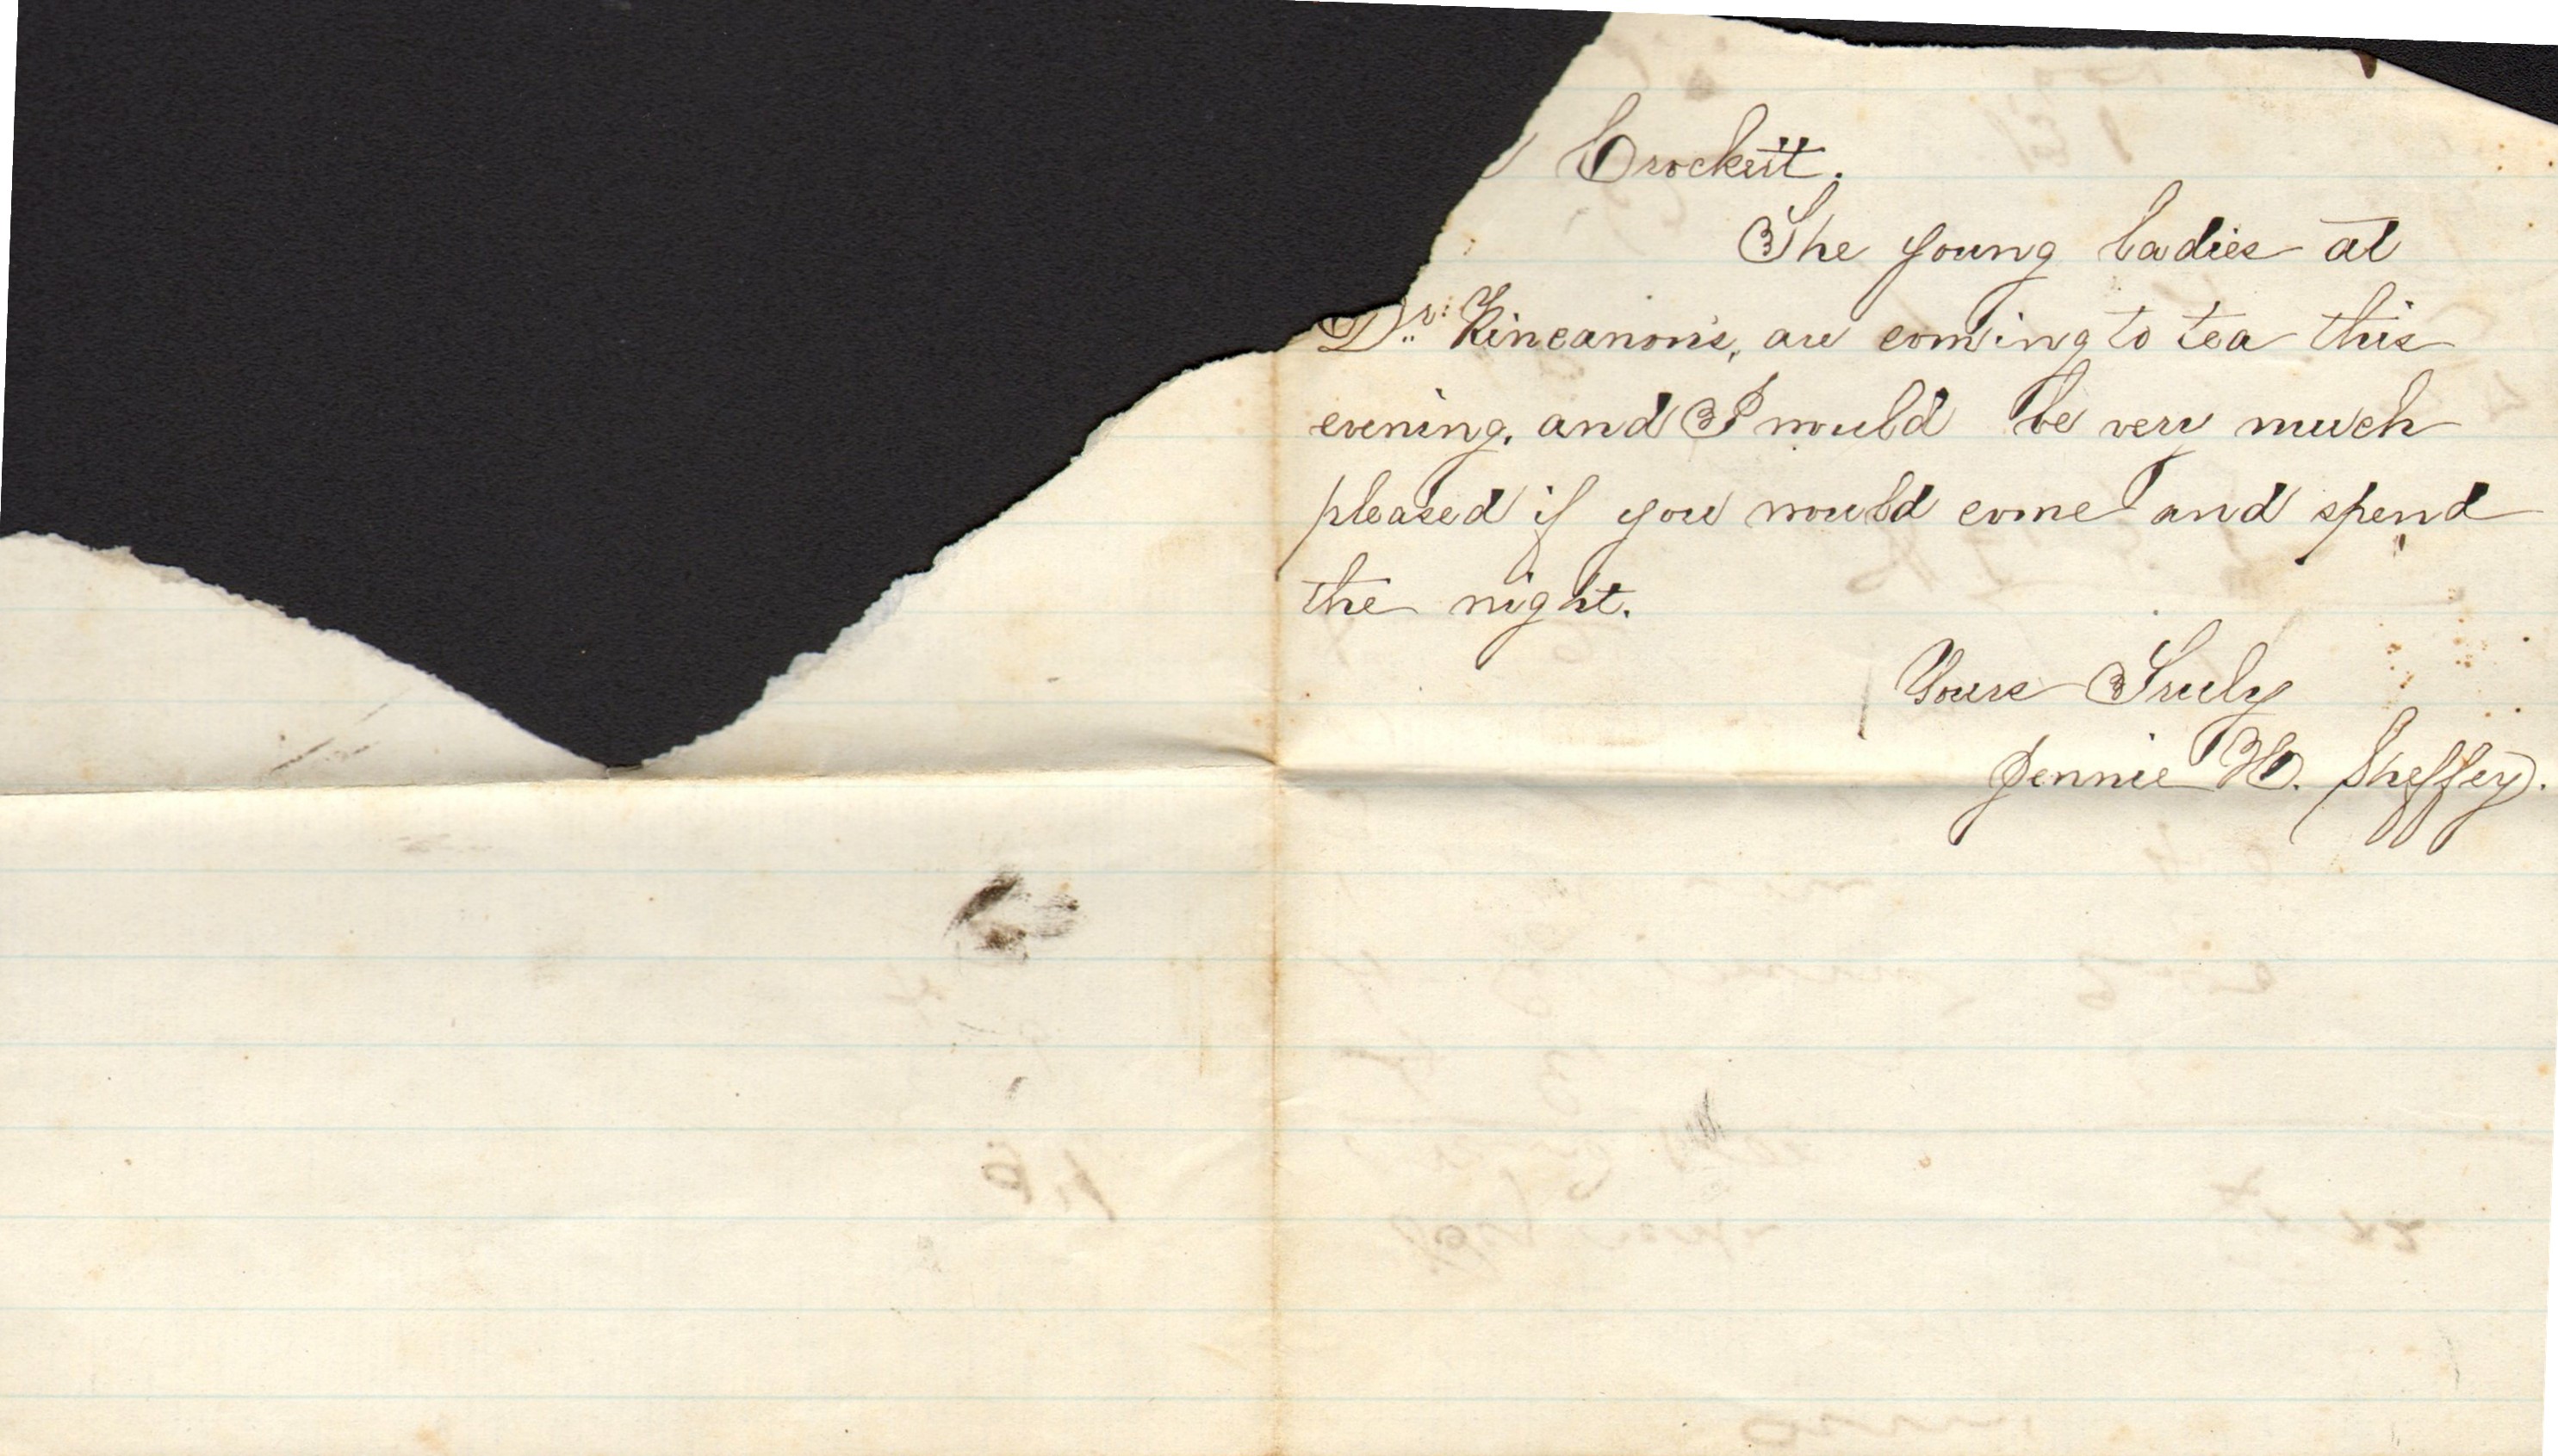 Crockett.
The young ladies at
Dr. Kincanon's, are coming to tea this
evening, and I would be very much
pleased if you would come and spend
the night.
Yours Truly
Jennie H. Sheffey.